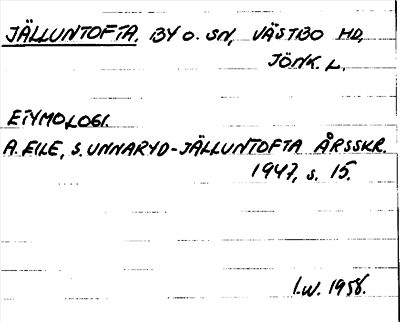 JÄLLUNTOFTA, BY O. SN, VÄSTBO HD,
JÖNK. L.
ETYMOLOGI.
A. EILE, S. UNNARYD-JÄLLUNTOFTA ÅRSSKR.
1947, s. 15.
I.W. 1958.